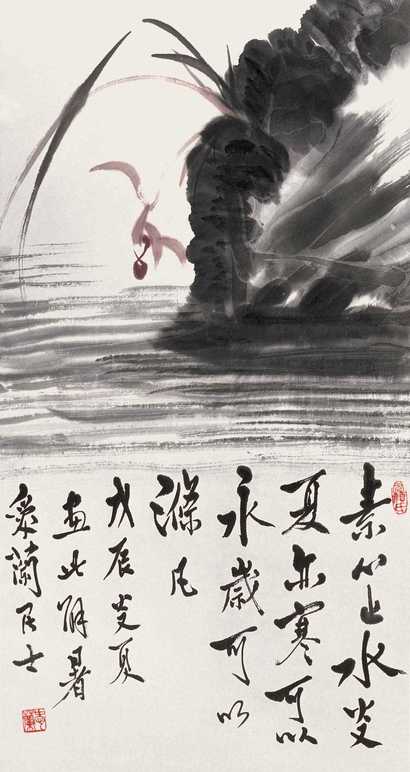 素心止水炎
夏亦寒可以
永歲可以
滌凡
戊辰炎夏
畫此解暑
愛蘭居士